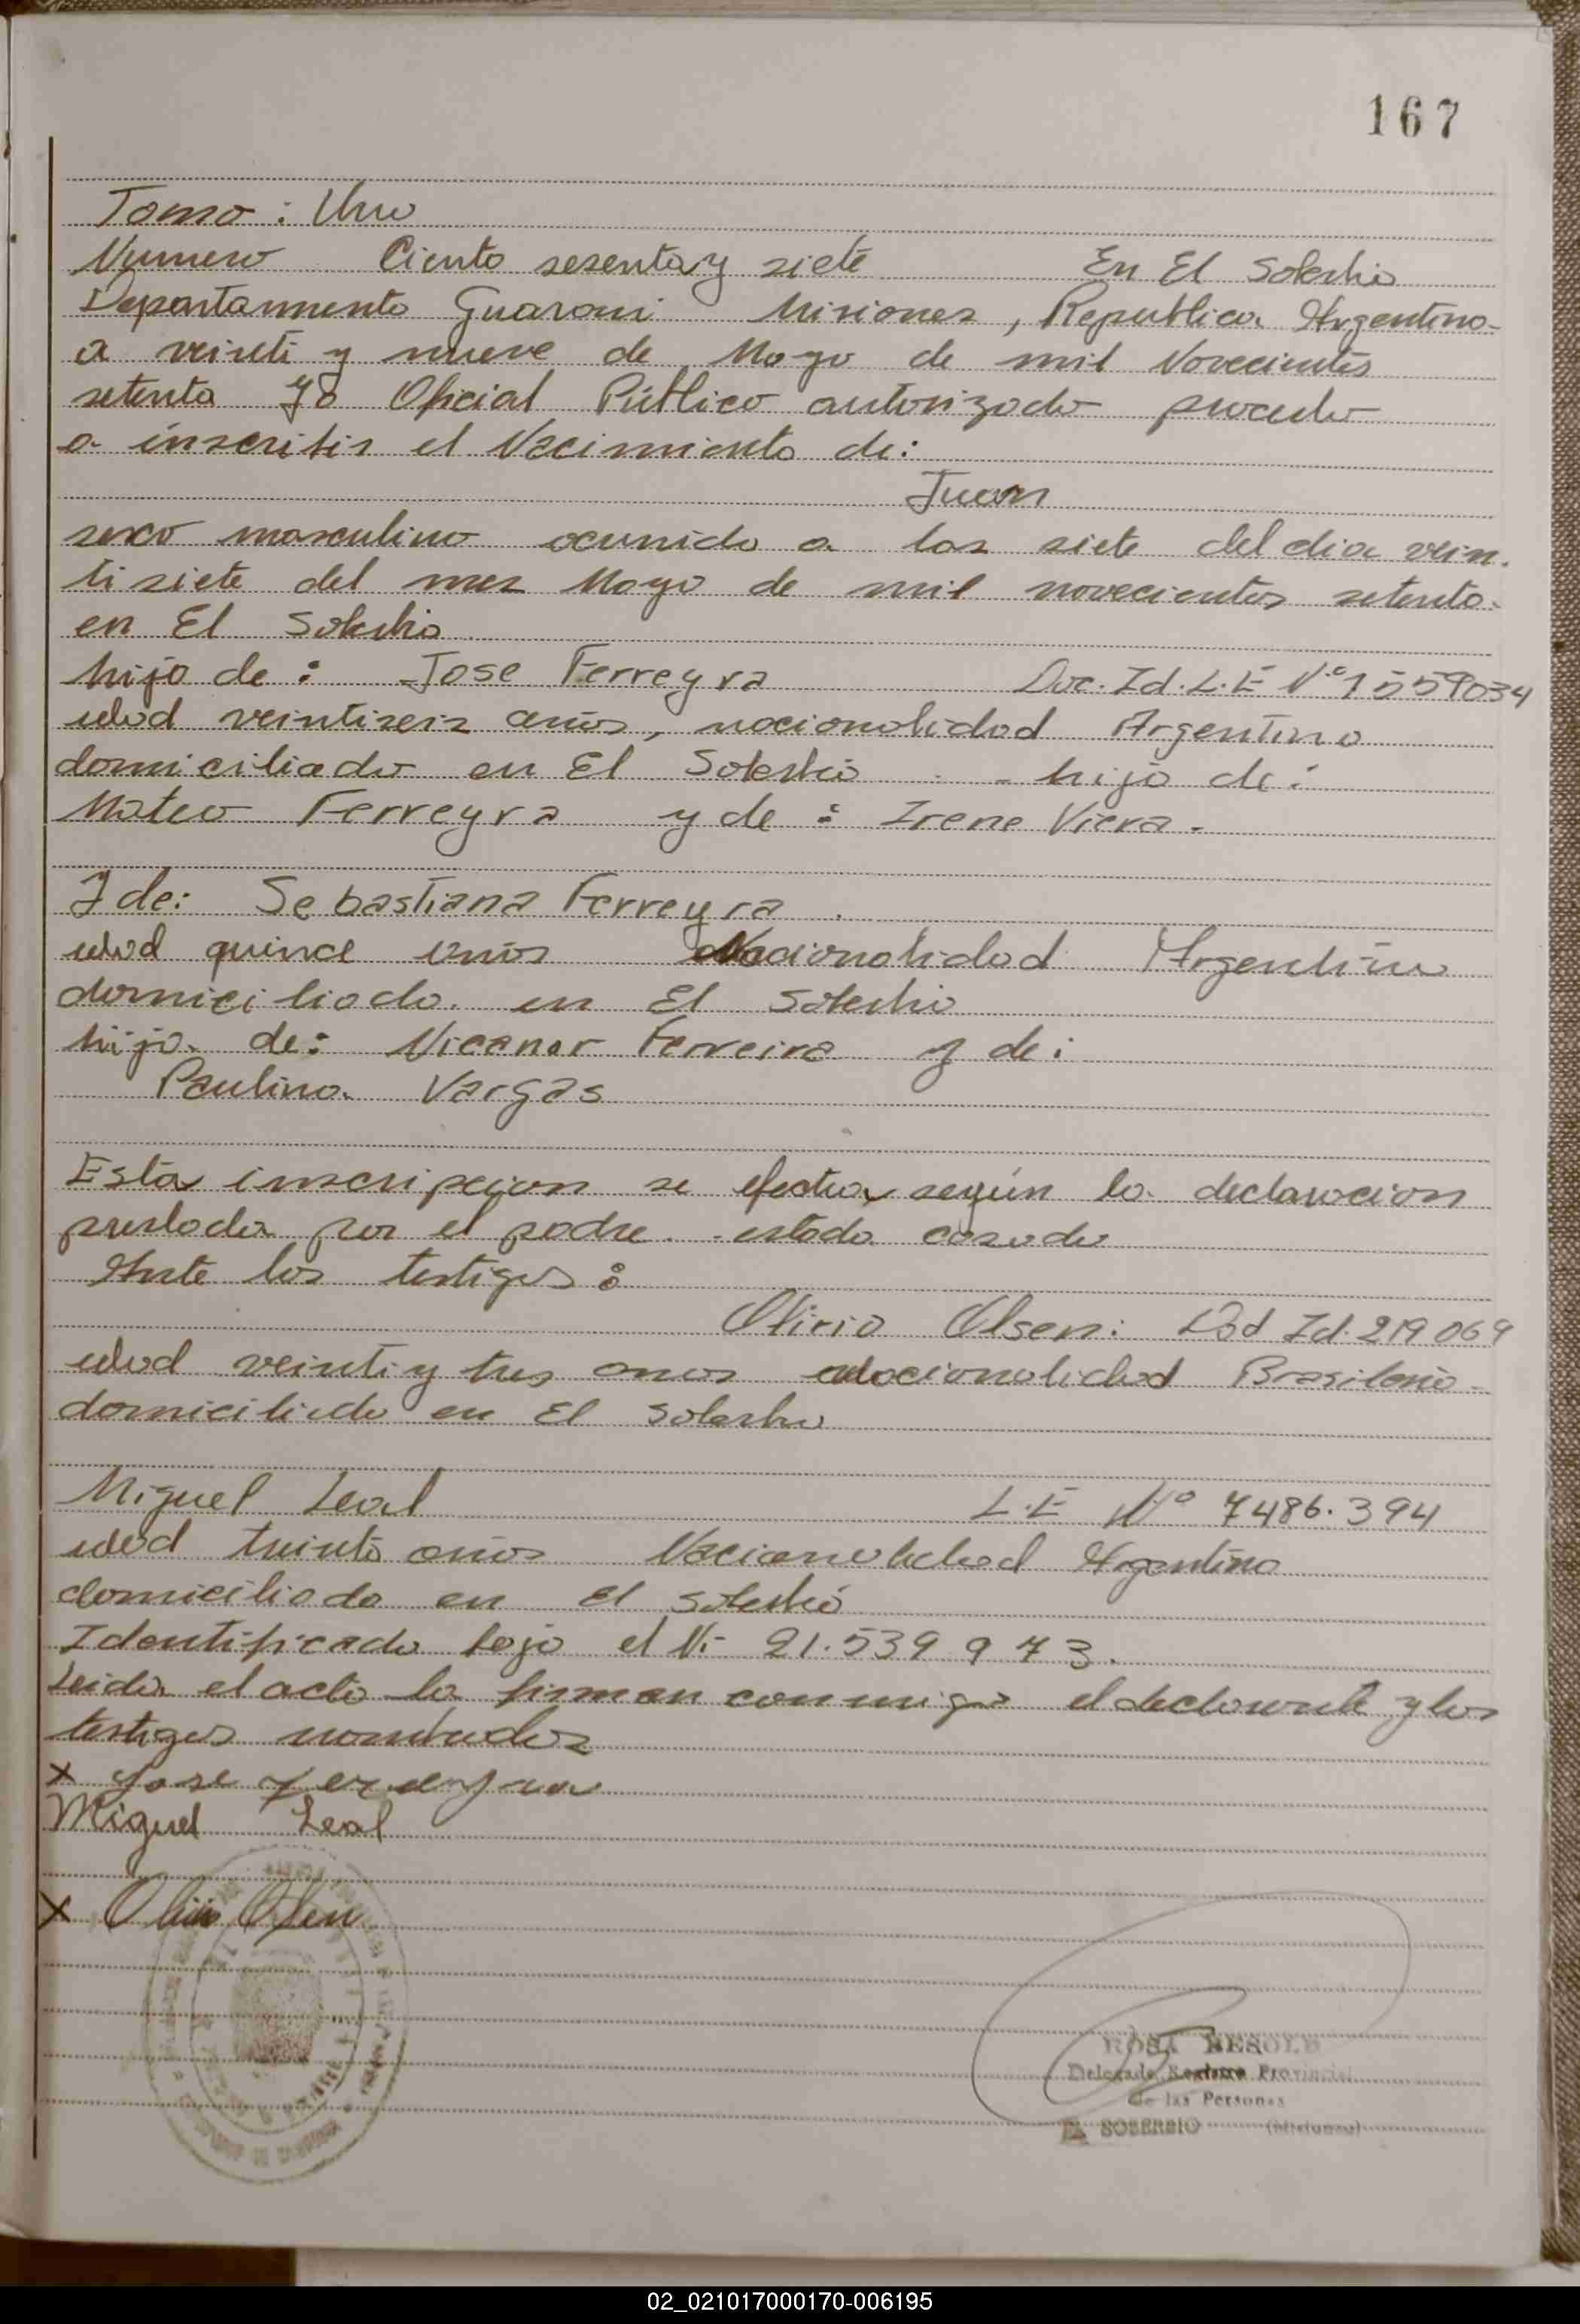 167
Tomo: Uno
Numero Ciento sesenta y siete En El Soberbio
Departamento Guarani Misiones, Republica Argentina
a veinti y nueve de Mayo de mil Novecientos
setenta Yo Oficial Público autorizado procedo
a inscribir el Nacimiento de:
Juan
sexo masculino ocurrido a las siete del dia vein.
tisiete del mes Mayo de mil novecientos setenta.
en El Soberbio
hijo de: Jose Ferreyra Doc. Id. L.E N.º 1559034
edad veintiseis años, nacionalidad Argentino
domiciliado en El Soberbio - hijo de:
Mateo Ferreyra y de: Irene Viera.
Y de: Sebastiana Ferreyra.
edad quince años Nacionalidad Argentina
domiciliada en El Soberbio
hija de: Nicanor Ferreira y de:
Paulina Vargas
Esta inscripcion se efectua según la declaracion
prestada por el padre.. estado casado
Ante los testigos:
Olirio Olsen: Id. 219069
edad veinti y tres años nacionalidad Brasileño-
domiciliado en El Soberbio
Miguel Leal L.E Nº 7486.394
edad treinta años Nacionalidad Argentino
domiciliado en El Soberbio
Identificado bajo el N:- 21.539973.
Leida el acta la firman conmigo el declarante y los
testigos nombrados
x Jose Fereyra
Miguel Leal
x Olirio Olsen
ROSA
Delegada Registro Provincial
de las Personas
EL SOBERBIO (Misiones)
02_021017000170-006195